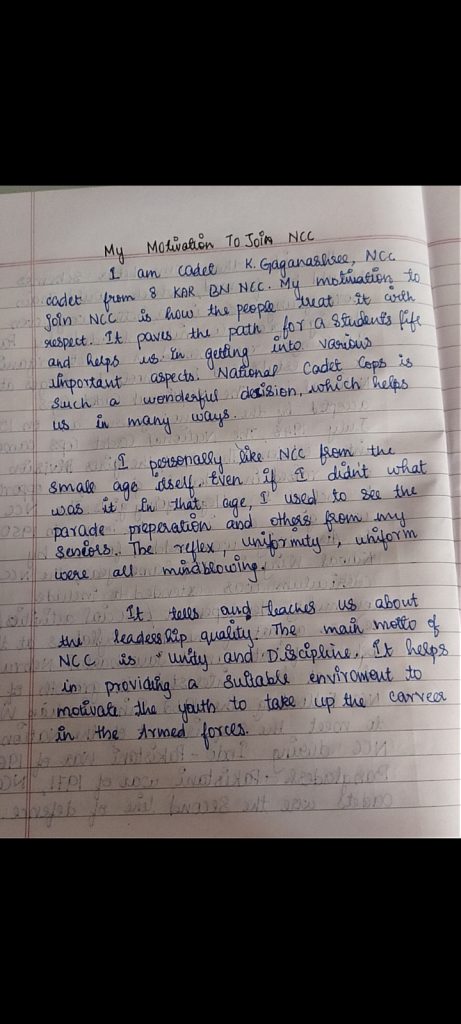 My Motivation To Join NCC
I am cadet K. Gaganashree, NCC
cadet from 8 KAR BN NCC. My motivation to
join NCC is how the people treat it with
respect. It paves the path for a Students life
and helps us in getting into various
important aspects. National Cadet Cops is
such a wonderful decision, which helps
us in many ways.
I personally like NCC from the
small age itself. Even if I didn't what
was it in that age, I used to see the
parade preparation and others from my
seniors. The reflex, uniformity, uniform
were all mindblowing.
It tells and teaches us about
the leadership quality. The main motto of
NCC is "unity and Discipline. It helps
in providing a suitable enviroment to
motivate the youth to take up the carreer
in the Armed forces.